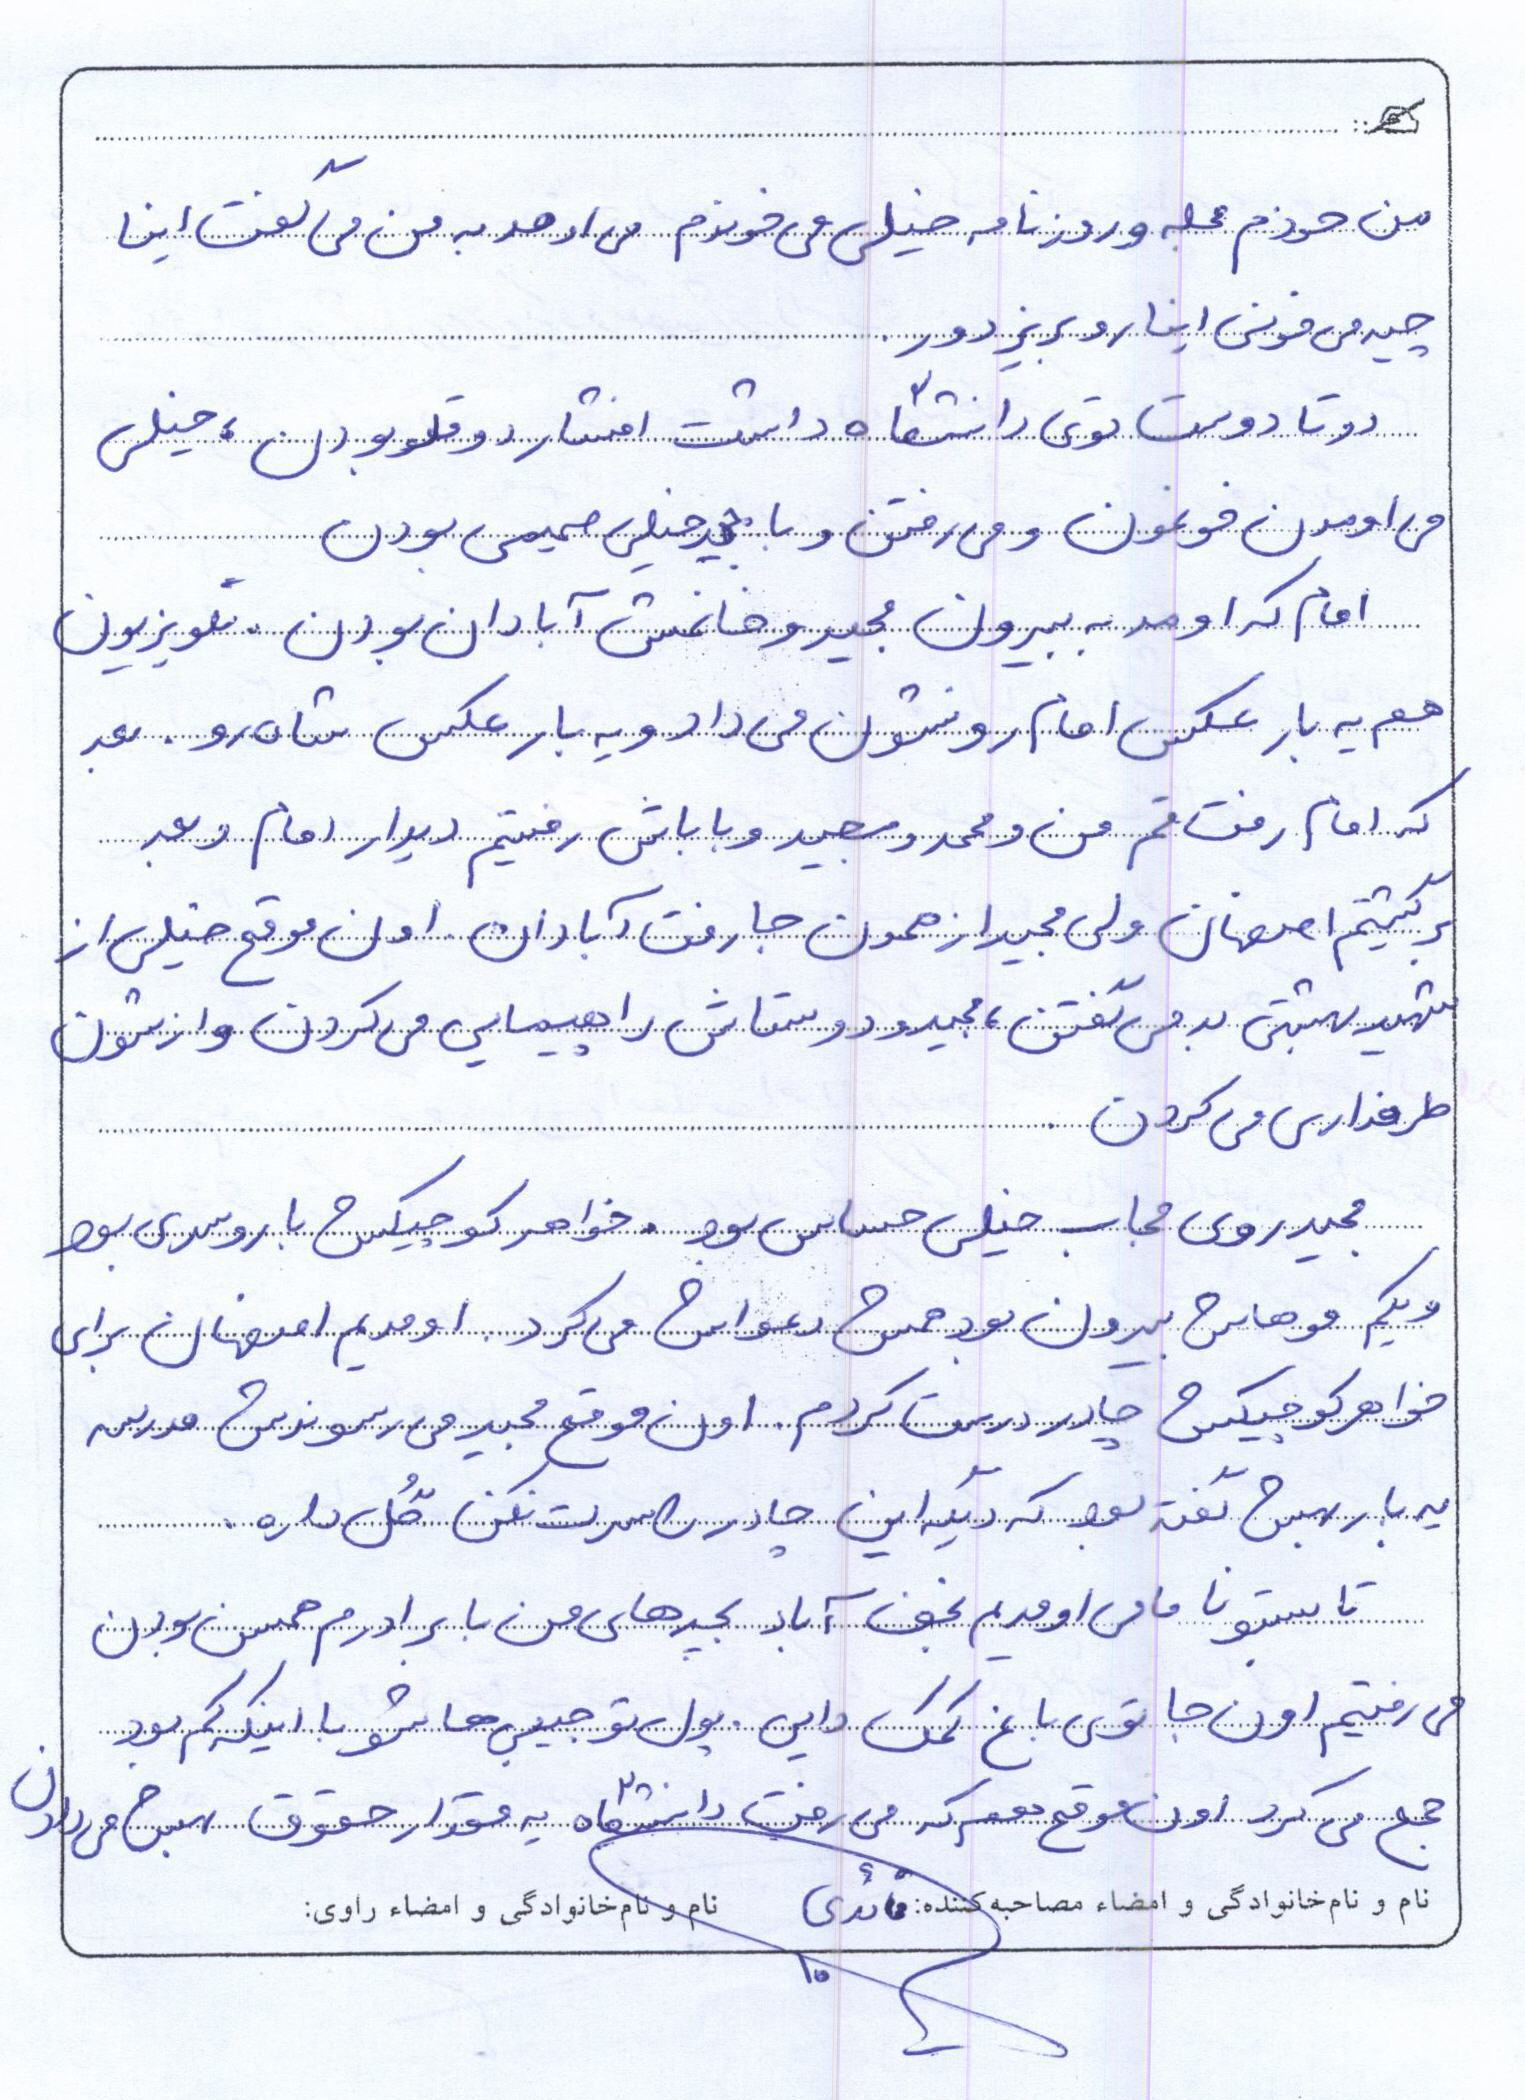 من خودم مجله و روزنامه خیلی می خوندم می اومد به من می گفت اینا
چیه می خونی اینا رو بریز دور.
دو تا دوست توی دانشگاه داشت افشار دو قلو بودن، خیلی
می اومدن خونمون و می رفتن و با مجید خیلی صمیمی بودن
امام که اومد به بیرون مجید و خانمش آبادان بودن. تلویزیون
هم یه بار عکس امام رو نشون می داد و یه بار عکس شاه رو. بعد
که امام رفت قم من و محمد و مجید و باباش رفتیم دیدار امام و بعد
برگشتم اصفهان ولی مجید از همون جا رفت آبادان. اون موقع خیلی از
شهید بهشتی بد می گفتن، مجید و دوستاش راهپیمایی می کردن و ازشون
طرفداری می کردن.
مجید روی حجاب خیلی حساس بود. خواهر کوچیکش با روسری بود
و یکم موهاش بیرون بود همش دعواش می کرد. اومدیم اصفهان برای
خواهر کوچیکش چادر درست کردم. اون موقع مجید می رسوندش مدرسه
یه بار بهش گفته بود که دیگه این چادر را سرت نکن گُل داره.
تابستونا ما می اومدیم نجف آباد بچه های من با برادرم همسن بودن
می رفتیم اون جا توی باغ کمک دایی. پول تو جیبی هاشو با اینکه کم بود
جمع می کرد اون موقع هم که می رفت دانشگاه یه مقدار حقوق بهش می دادن
نام و نام خانوادگی و امضاء مصاحبه کننده: قائدی نام و نام خانوادگی و امضاء راوی:
۱۰